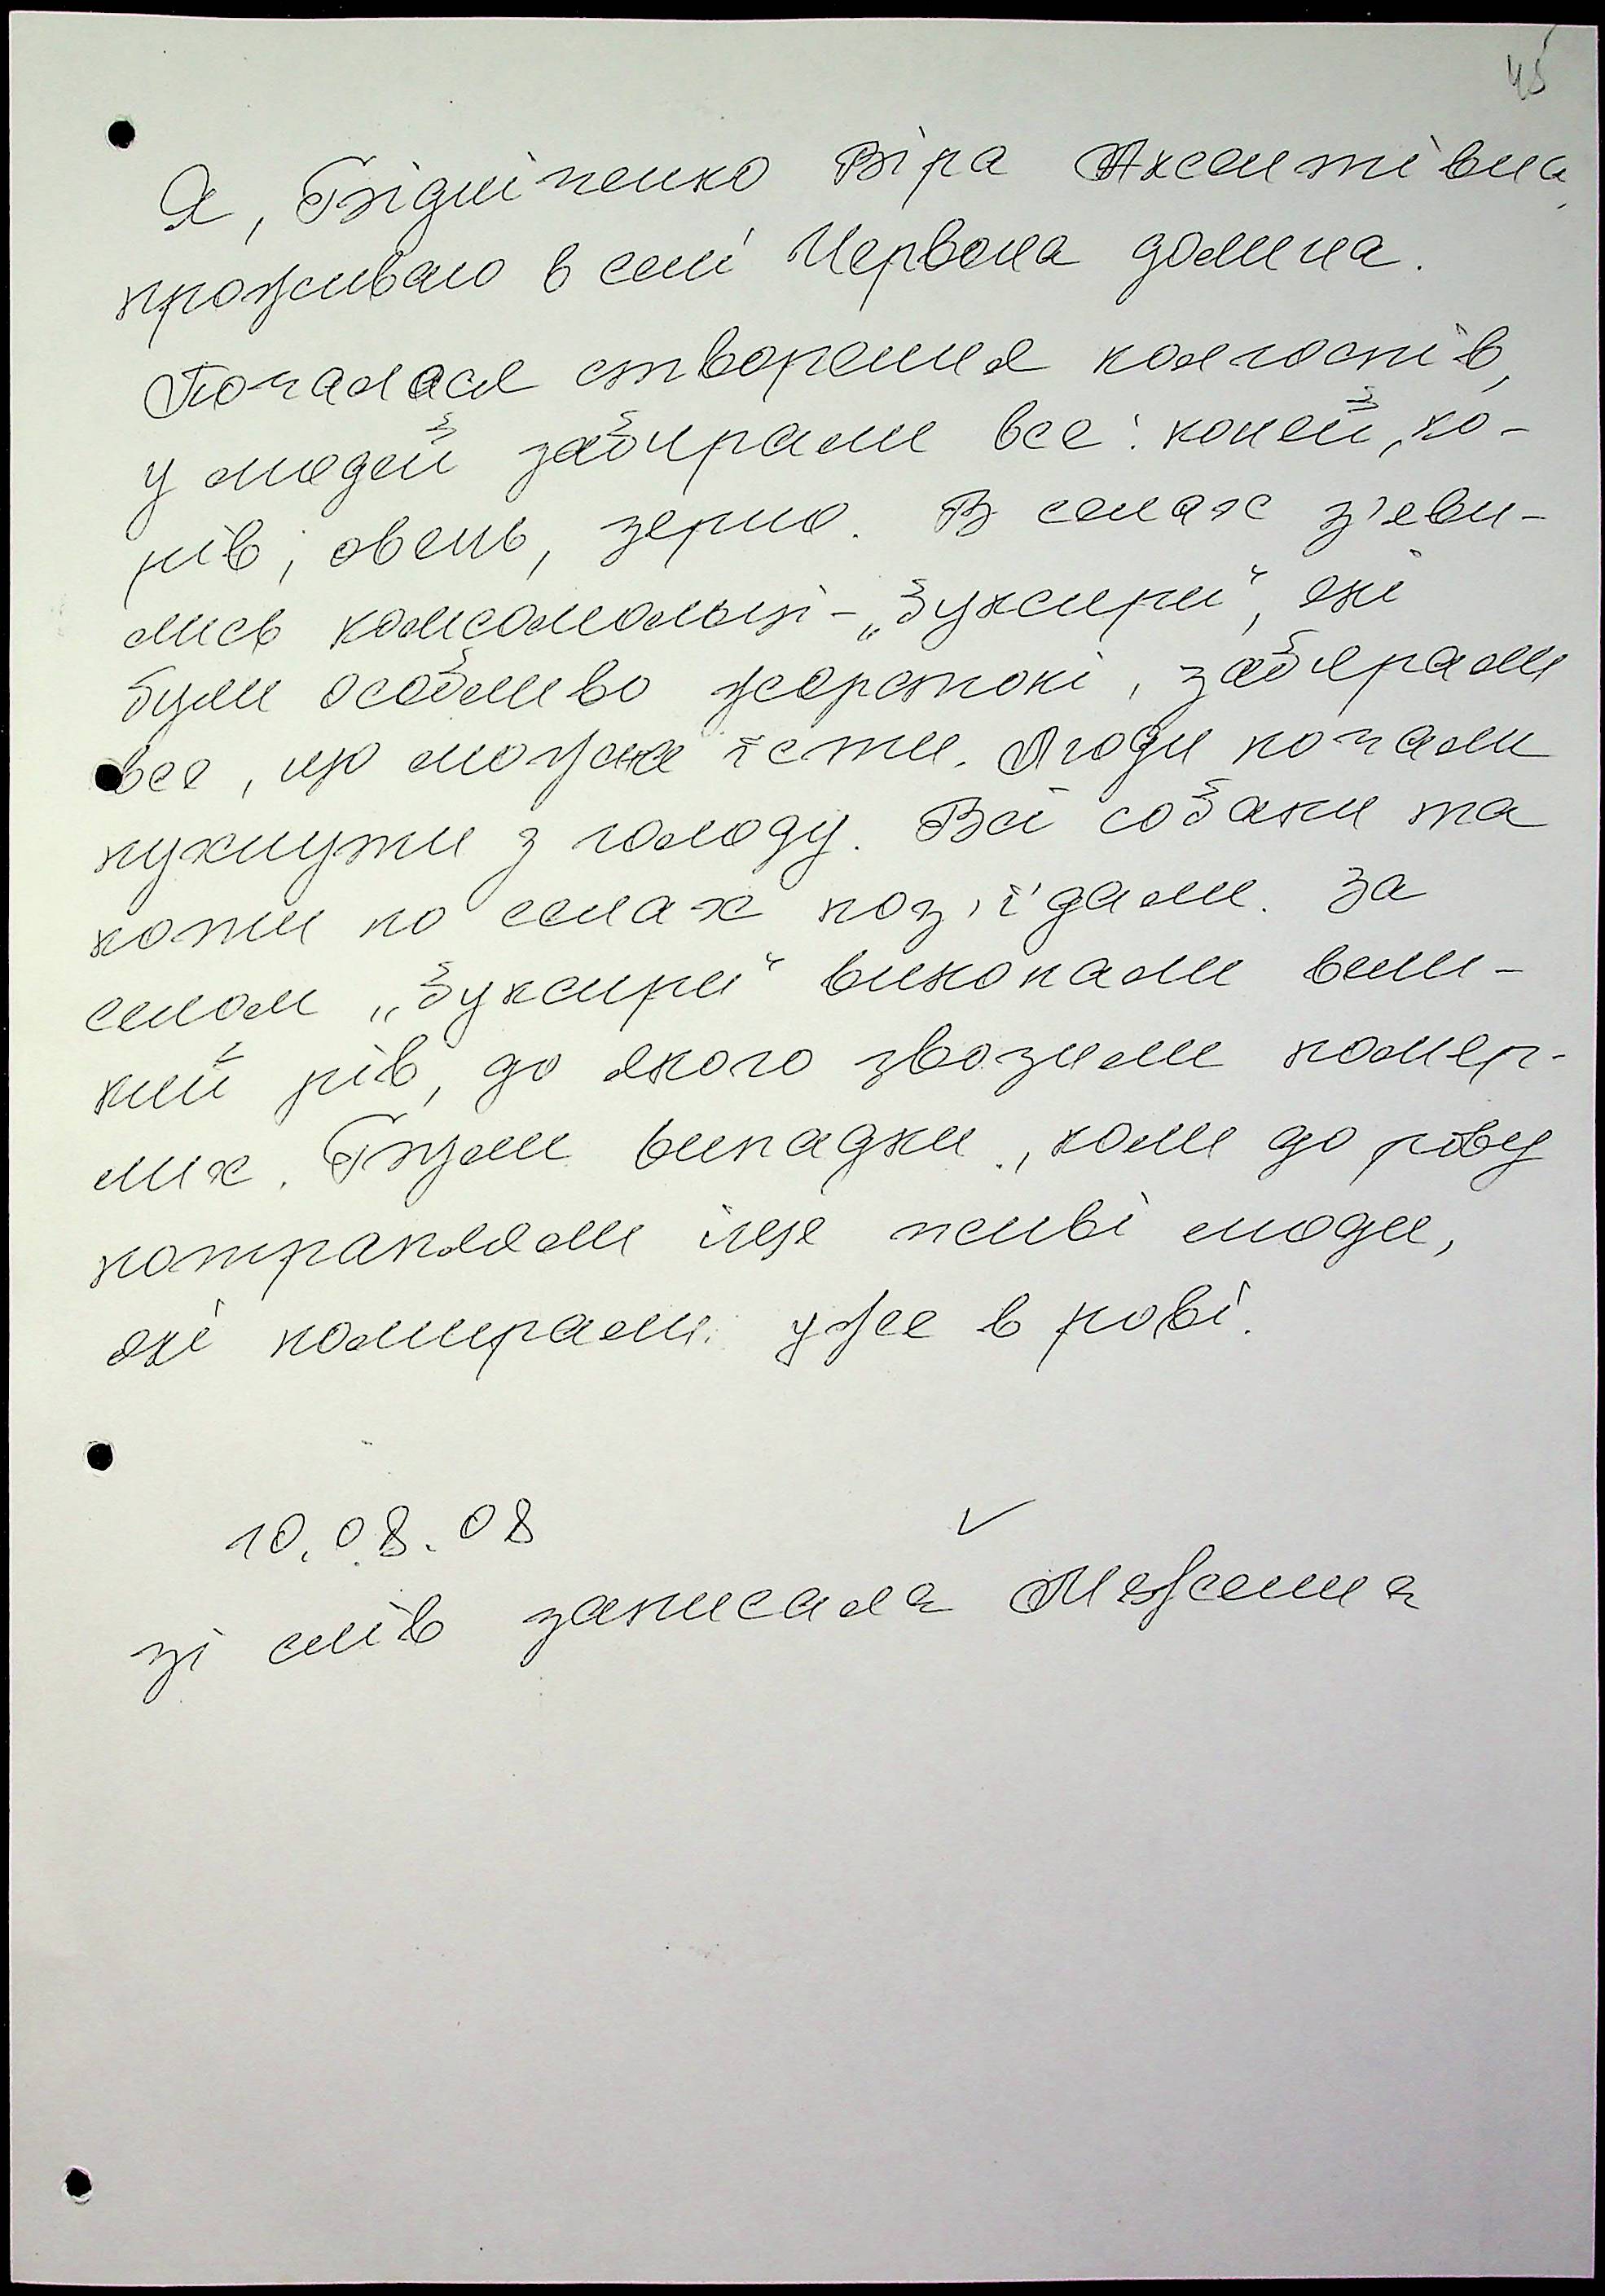 45
Я, Бідшіпенко Віра Аксентівна,
проживаю в селі Червона долина.
Почалася створення колгоспів,
у людей забирали все: коней, ко-
рів, овець, зерно. В селах з'яви-
лись комсомольці - „буксири", які
були особливо жорстокі, забирали
все, що можна їсти. Люди почали
пухнути з голоду. Всі собаки та
коти по селах поз'їдали. За
селом „буксири" викопали вели-
кий рів, до якого звозили помер-
лих. Були випадки, коли до рову
потрапляли іще живі люди,
які помирали уже в рові.
10.08.08
зі слів записала